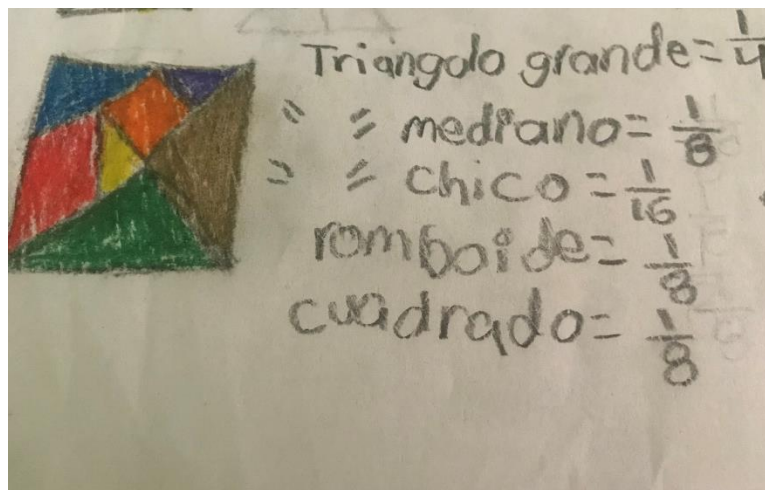 Triángolo grande= 1/4
" = mediano= 1/8
" = chico = 1/16
romboide= 1/8
cuadrado= 1/8